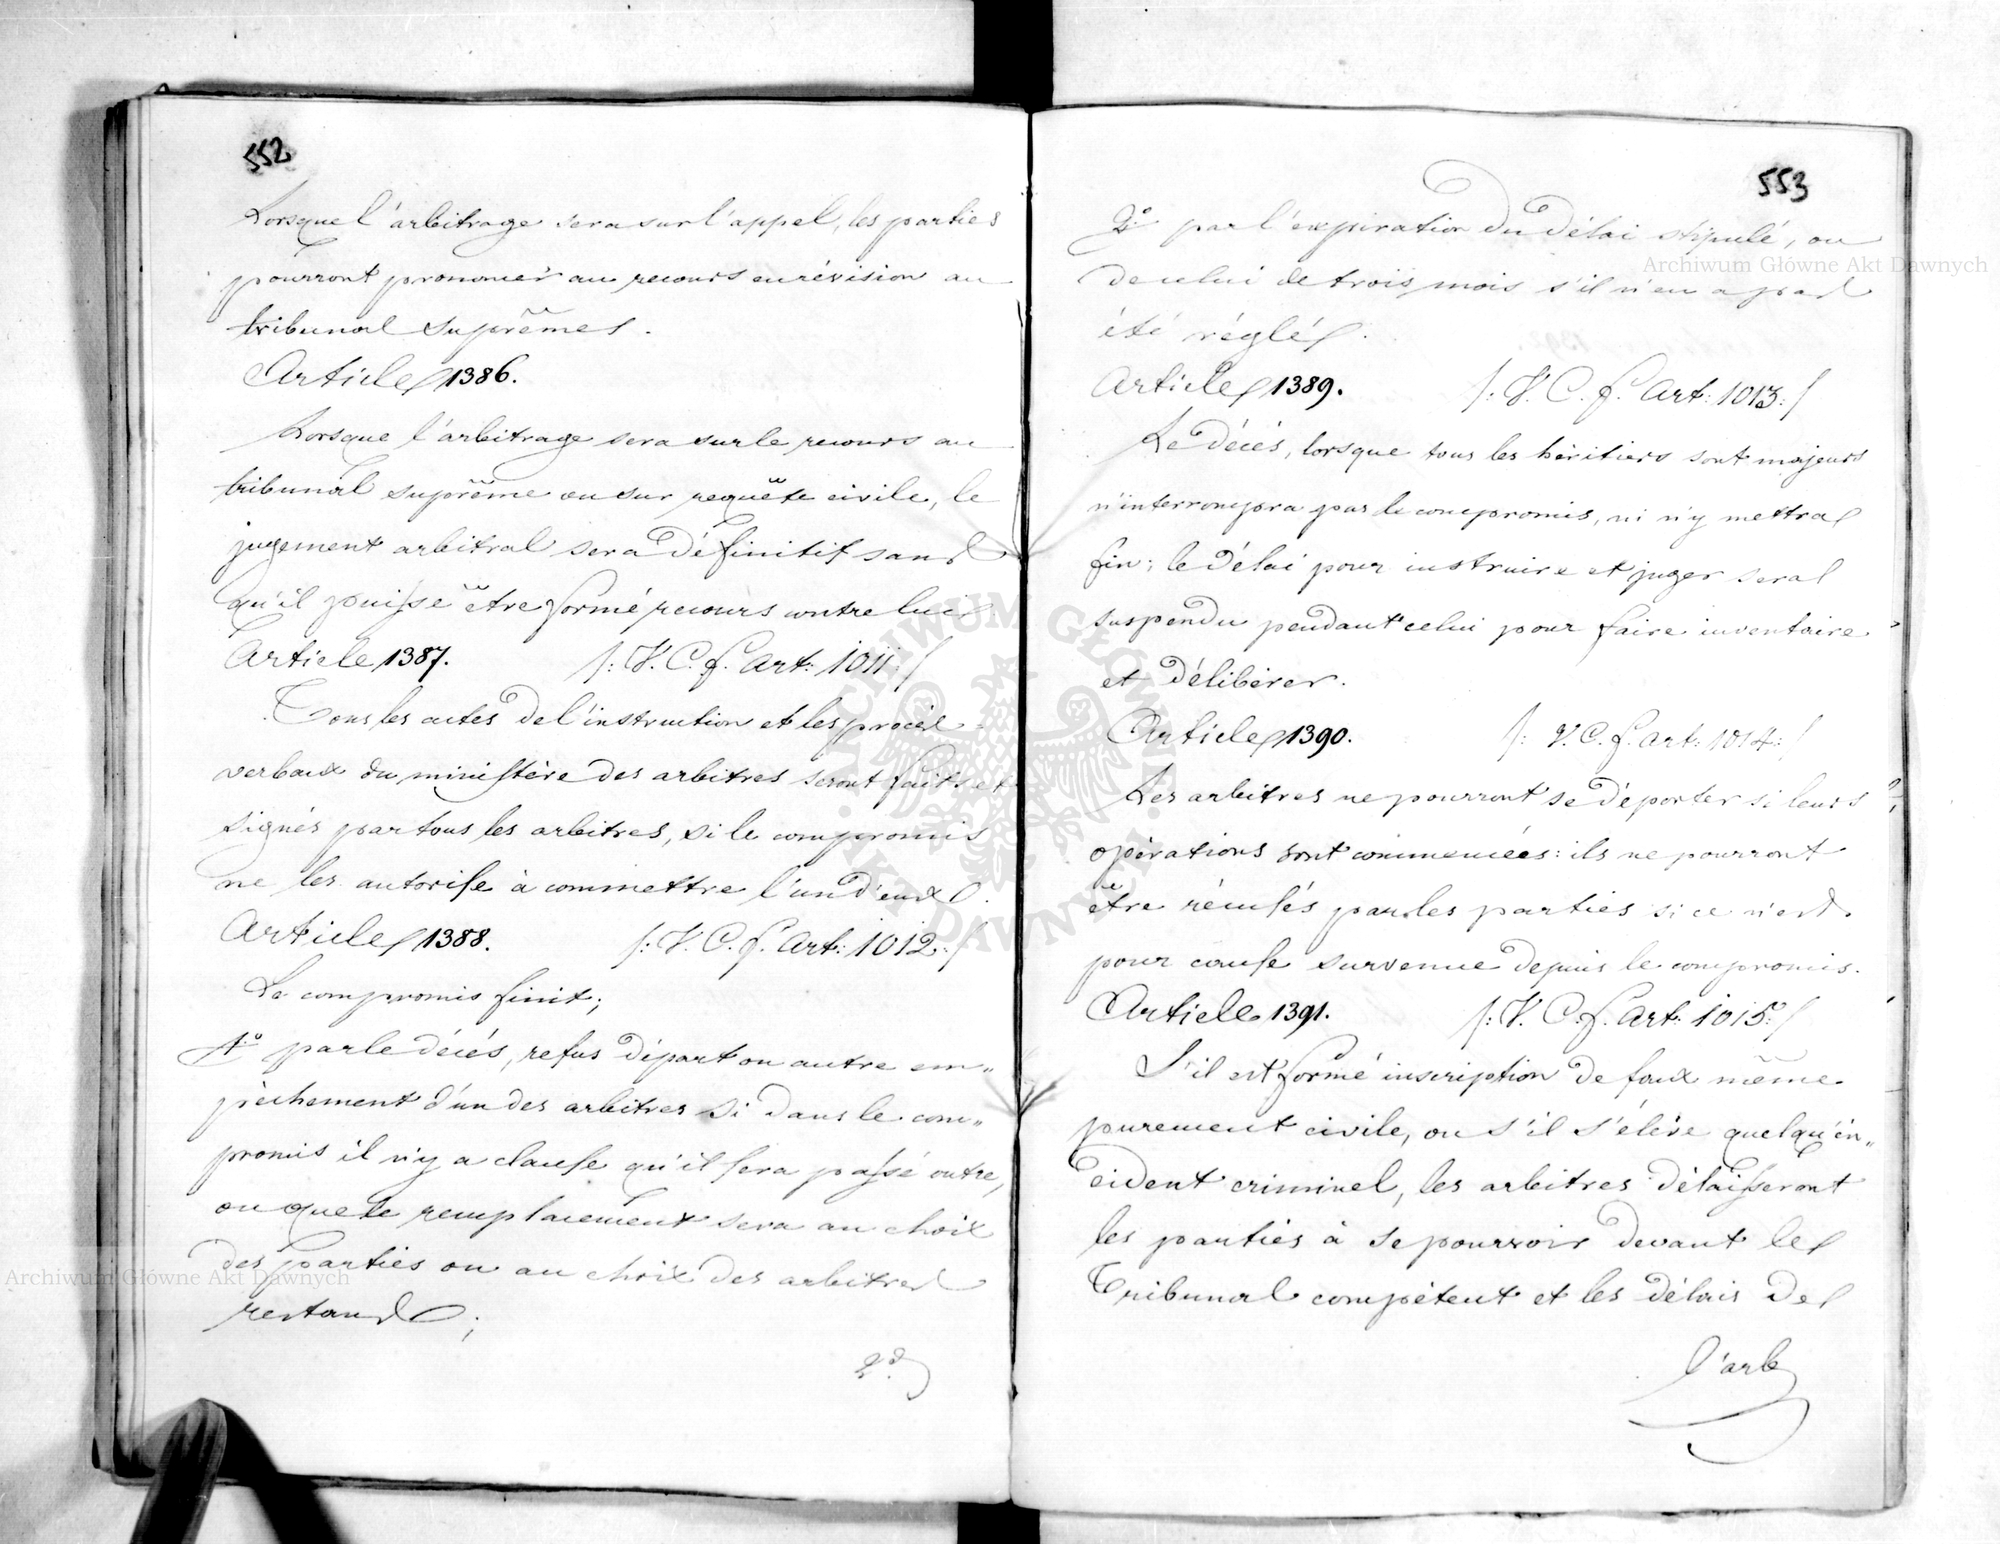 552
Lorsque l'arbitrage sera sur l'appel, les parties
pourront prononcer au recours en révision au
tribunal suprêmes.
Article 1386.
Lorsque l'arbitrage sera sur le recours au
tribunal suprême ou sur requête civile, le
jugement arbitral sera définitif sans
qu'il puisse être formé recours contre lui
Article 1387. /: V. C. f. Art: 1011 :/
Tous les actes de l'instruction et les procès-
verbaux du ministère des arbitres seront faits et
signés par tous les arbitres, si le compromis
ne les autorise à commettre l'un d'eux.
Article 1388. /: V. C. f. Art: 1012 :/
Le compromis finit;
1º par le décés, refus départ ou autre em„
pêchement d'un des arbitres si dans le com„
promis il n'y a clause qu'il sera passé outre,
ou que le remplacement sera au choix
des parties ou au choix des arbitres
restans;
2º
553
2º par l'expiration du délai stipulé, ou
de celui de trois mois s'il n'en a pas
été réglé.
Article 1389. /: V. C. f. Art: 1013 :/
Le décés, lorsque tous les héritiers sont majeurs
n'interrompra pas le compromis, ni n'y mettra
fin; le délai pour instruire et juger sera
suspendu pendant celui pour faire inventaire
et délibérer.
Article 1390. /: V. C. f. Art: 1014 :/
Les arbitres ne pourront se déporter si leurs
opérations sont commencées: ils ne pourront
être récusés par les parties si ce n'est
pour cause survenue depuis le compromis.
Article 1391. /: V. C. f. Art: 1015 :/
S'il est formé inscription de faux même
purement civile, ou s'il s'élève quelqu'in„
cident criminel, les arbitres délaisseront
les parties à se pourvoir devant le
Tribunal compétent et les délais de
l'arb
Archiwum Główne Akt Dawnych
Archiwum Główne Akt Dawnych
ARCHIWUM GŁÓWNE AKT DAWNYCH